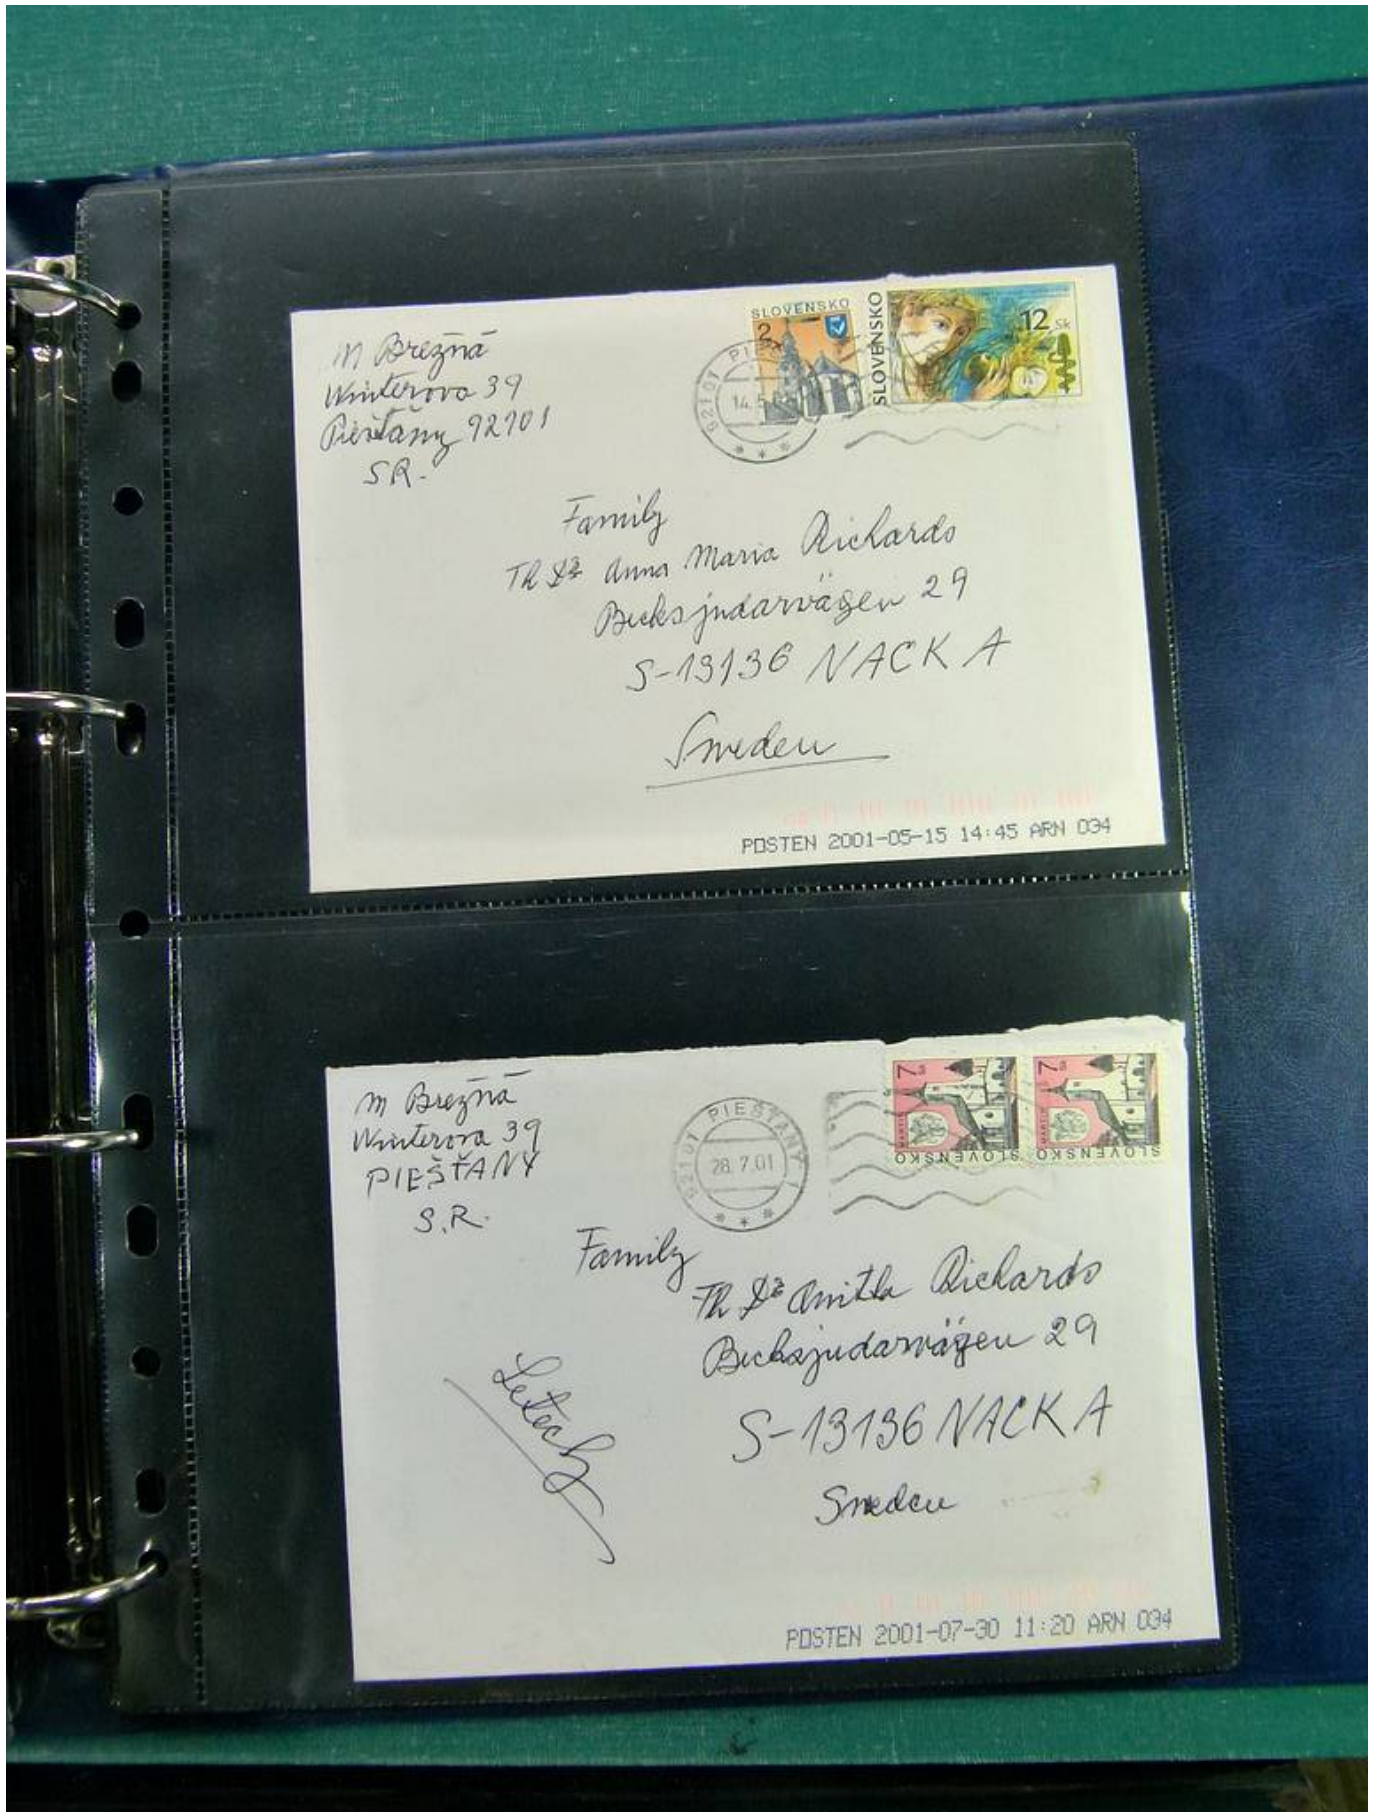 M Brezňa
Winterova 39
Piešťany 92101
S R.
SLOVENSKO
2 Sk
SLOVENSKO
12 Sk
92101 PIE
14.5
Family
Th Dr Anna Maria Richards
Becksjudarvägen 29
S-13136 NACKA
Sweden
POSTEN 2001-05-15 14:45 ARN 034
M Brezňa
Winterova 39
PIEŠŤANY
S.R.
92101 PIEŠŤANY 1
28.7.01
7 Sk
MARTIN
SLOVENSKO
7 Sk
MARTIN
SLOVENSKO
Family
Th Dr Anitha Richards
Becksjudarvägen 29
S-13136 NACKA
Sweden
Letech
POSTEN 2001-07-30 11:20 ARN 034